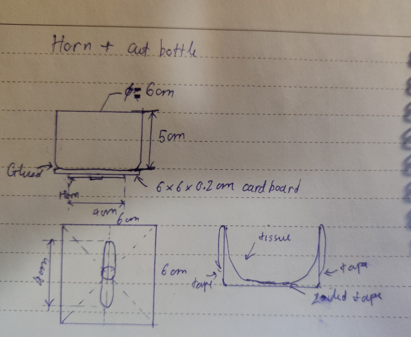 Horn + cut bottle
ϕ = 6cm
5cm
Glued
6×6×0.2cm cardboard
Horn
4cm
6cm
4cm
6cm
tissue
tape
tape
tape